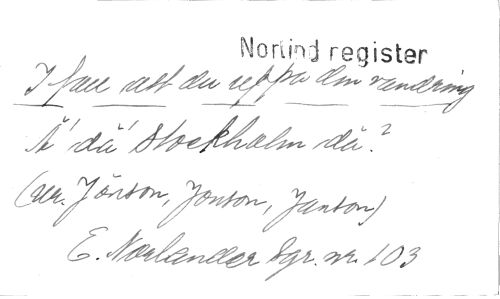 Norlind register
I fall att du uppå din vandring
Ä' dä' Stockholm dä?
(ur. Jönson, Jonson, Janson)
E. Norlander Sgr. nr. 103